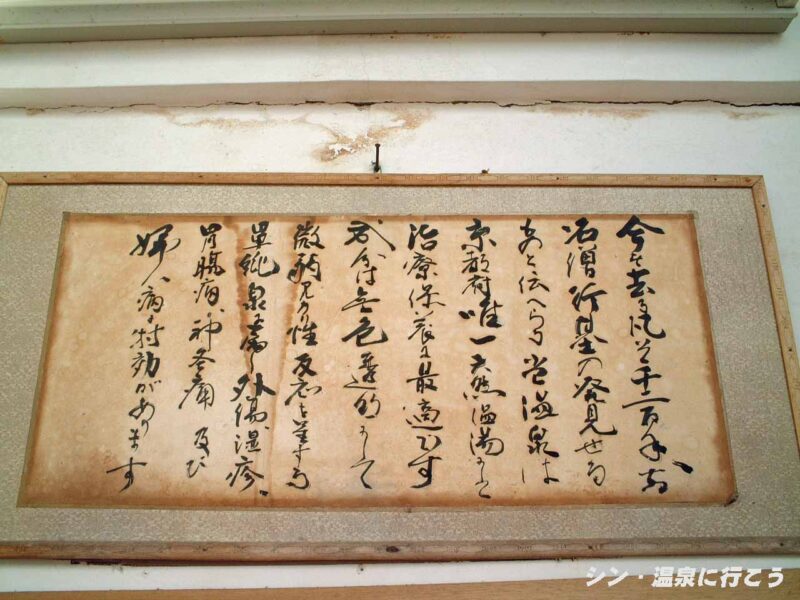 今を去る凡そ千二百年前
名僧行基の発見せる
ものと伝へらる当温泉は
京都府唯一天然温湯にして
治療保養に最適です
成分は無色透明にして
微弱アルカリ性反応を呈する
単純泉に属し外傷、湿疹、
胃腸病、神経痛及び
婦人病に特効があります
シン・温泉に行こう